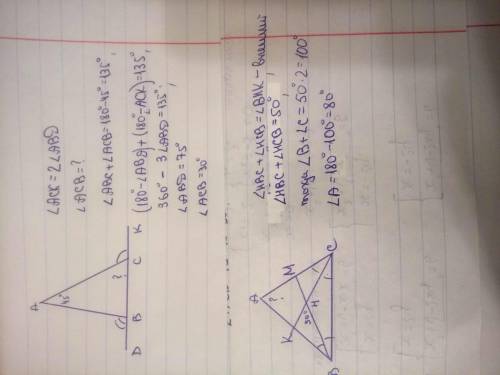 ∠ACK = 2∠ABD
∠ACB = ?
∠ABC + ∠ACB = 180° - 45° = 135°,
(180° - ∠ABD) + (180° - ∠ACK) = 135°,
360° - 3∠ABD = 135°,
∠ABD = 75°
∠ACB = 30°
A
45°
?
D
B
C
K
∠HBC + ∠HCB = ∠BHK - внешний
∠HBC + ∠HCB = 50°,
тогда ∠B + ∠C = 50° · 2 = 100°
∠A = 180° - 100° = 80°
A
?
K
M
50°
H
B
C